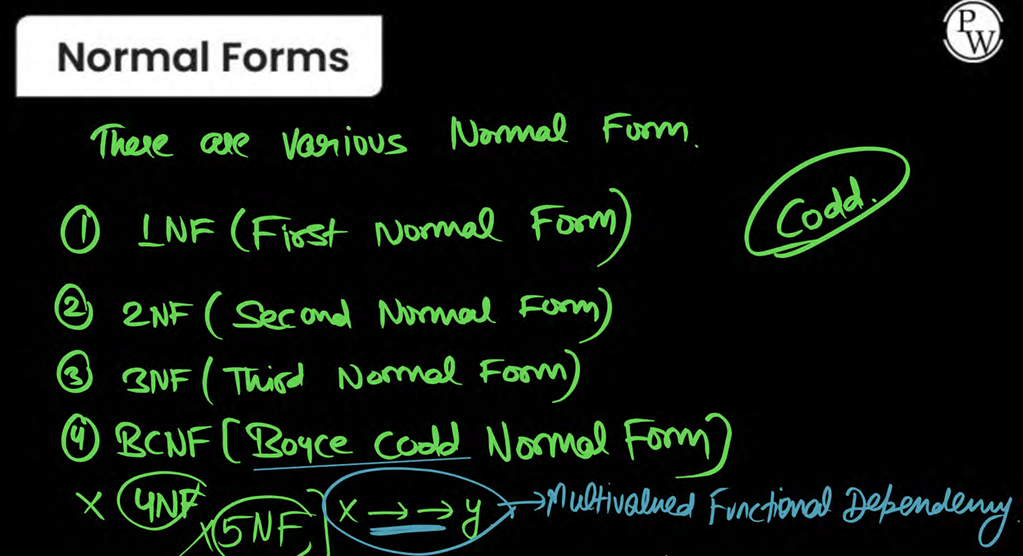 Normal Forms
PW
There are various Normal Form.
Codd.
① 1NF (First Normal Form)
② 2NF (Second Normal Form)
③ 3NF (Third Normal Form)
④ BCNF [Boyce Codd Normal Form]
x 4NF x 5NF] x →→ y → Multivalued Functional Dependency.